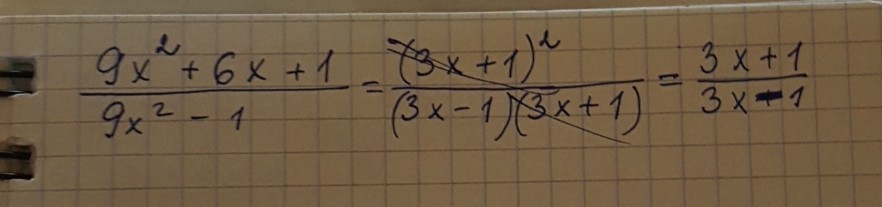 \frac{9x^2+6x+1}{9x^2-1} = \frac{(3x+1)^2}{(3x-1)(3x+1)} = \frac{3x+1}{3x-1}